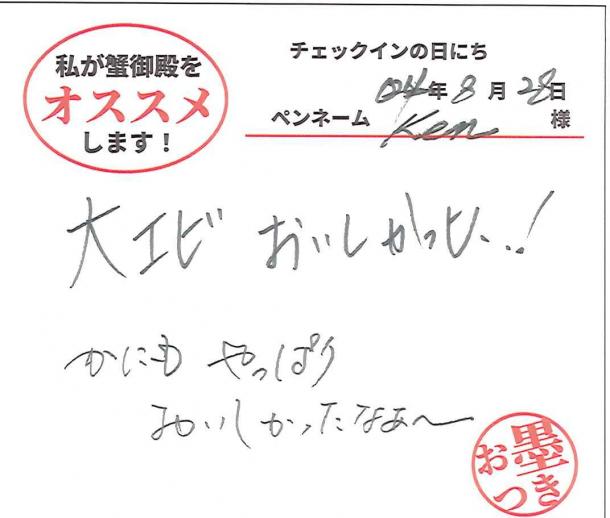 私が蟹御殿を
オススメ
します！
チェックインの日にち
024年8月28日
ペンネーム Ken 様
大エビ おいしかった..!
かにも やっぱり
おいしかったなぁ〜
お墨
つき